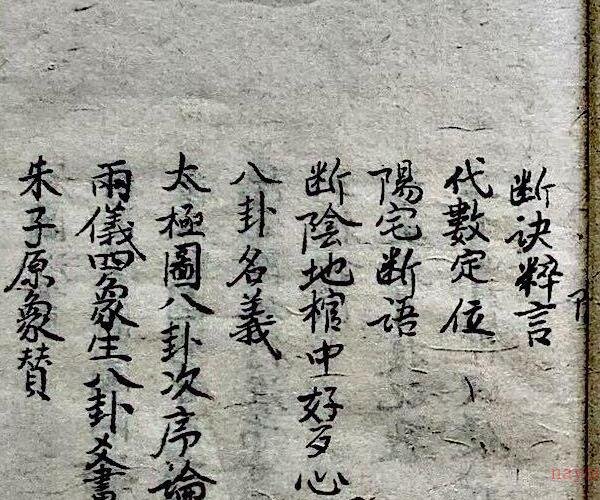 断诀粹言
代數定位
陽宅断语
断陰地棺中好歹心
八卦名義
太極圖八卦次序論
兩儀四象生八卦爻書
朱子原象賛